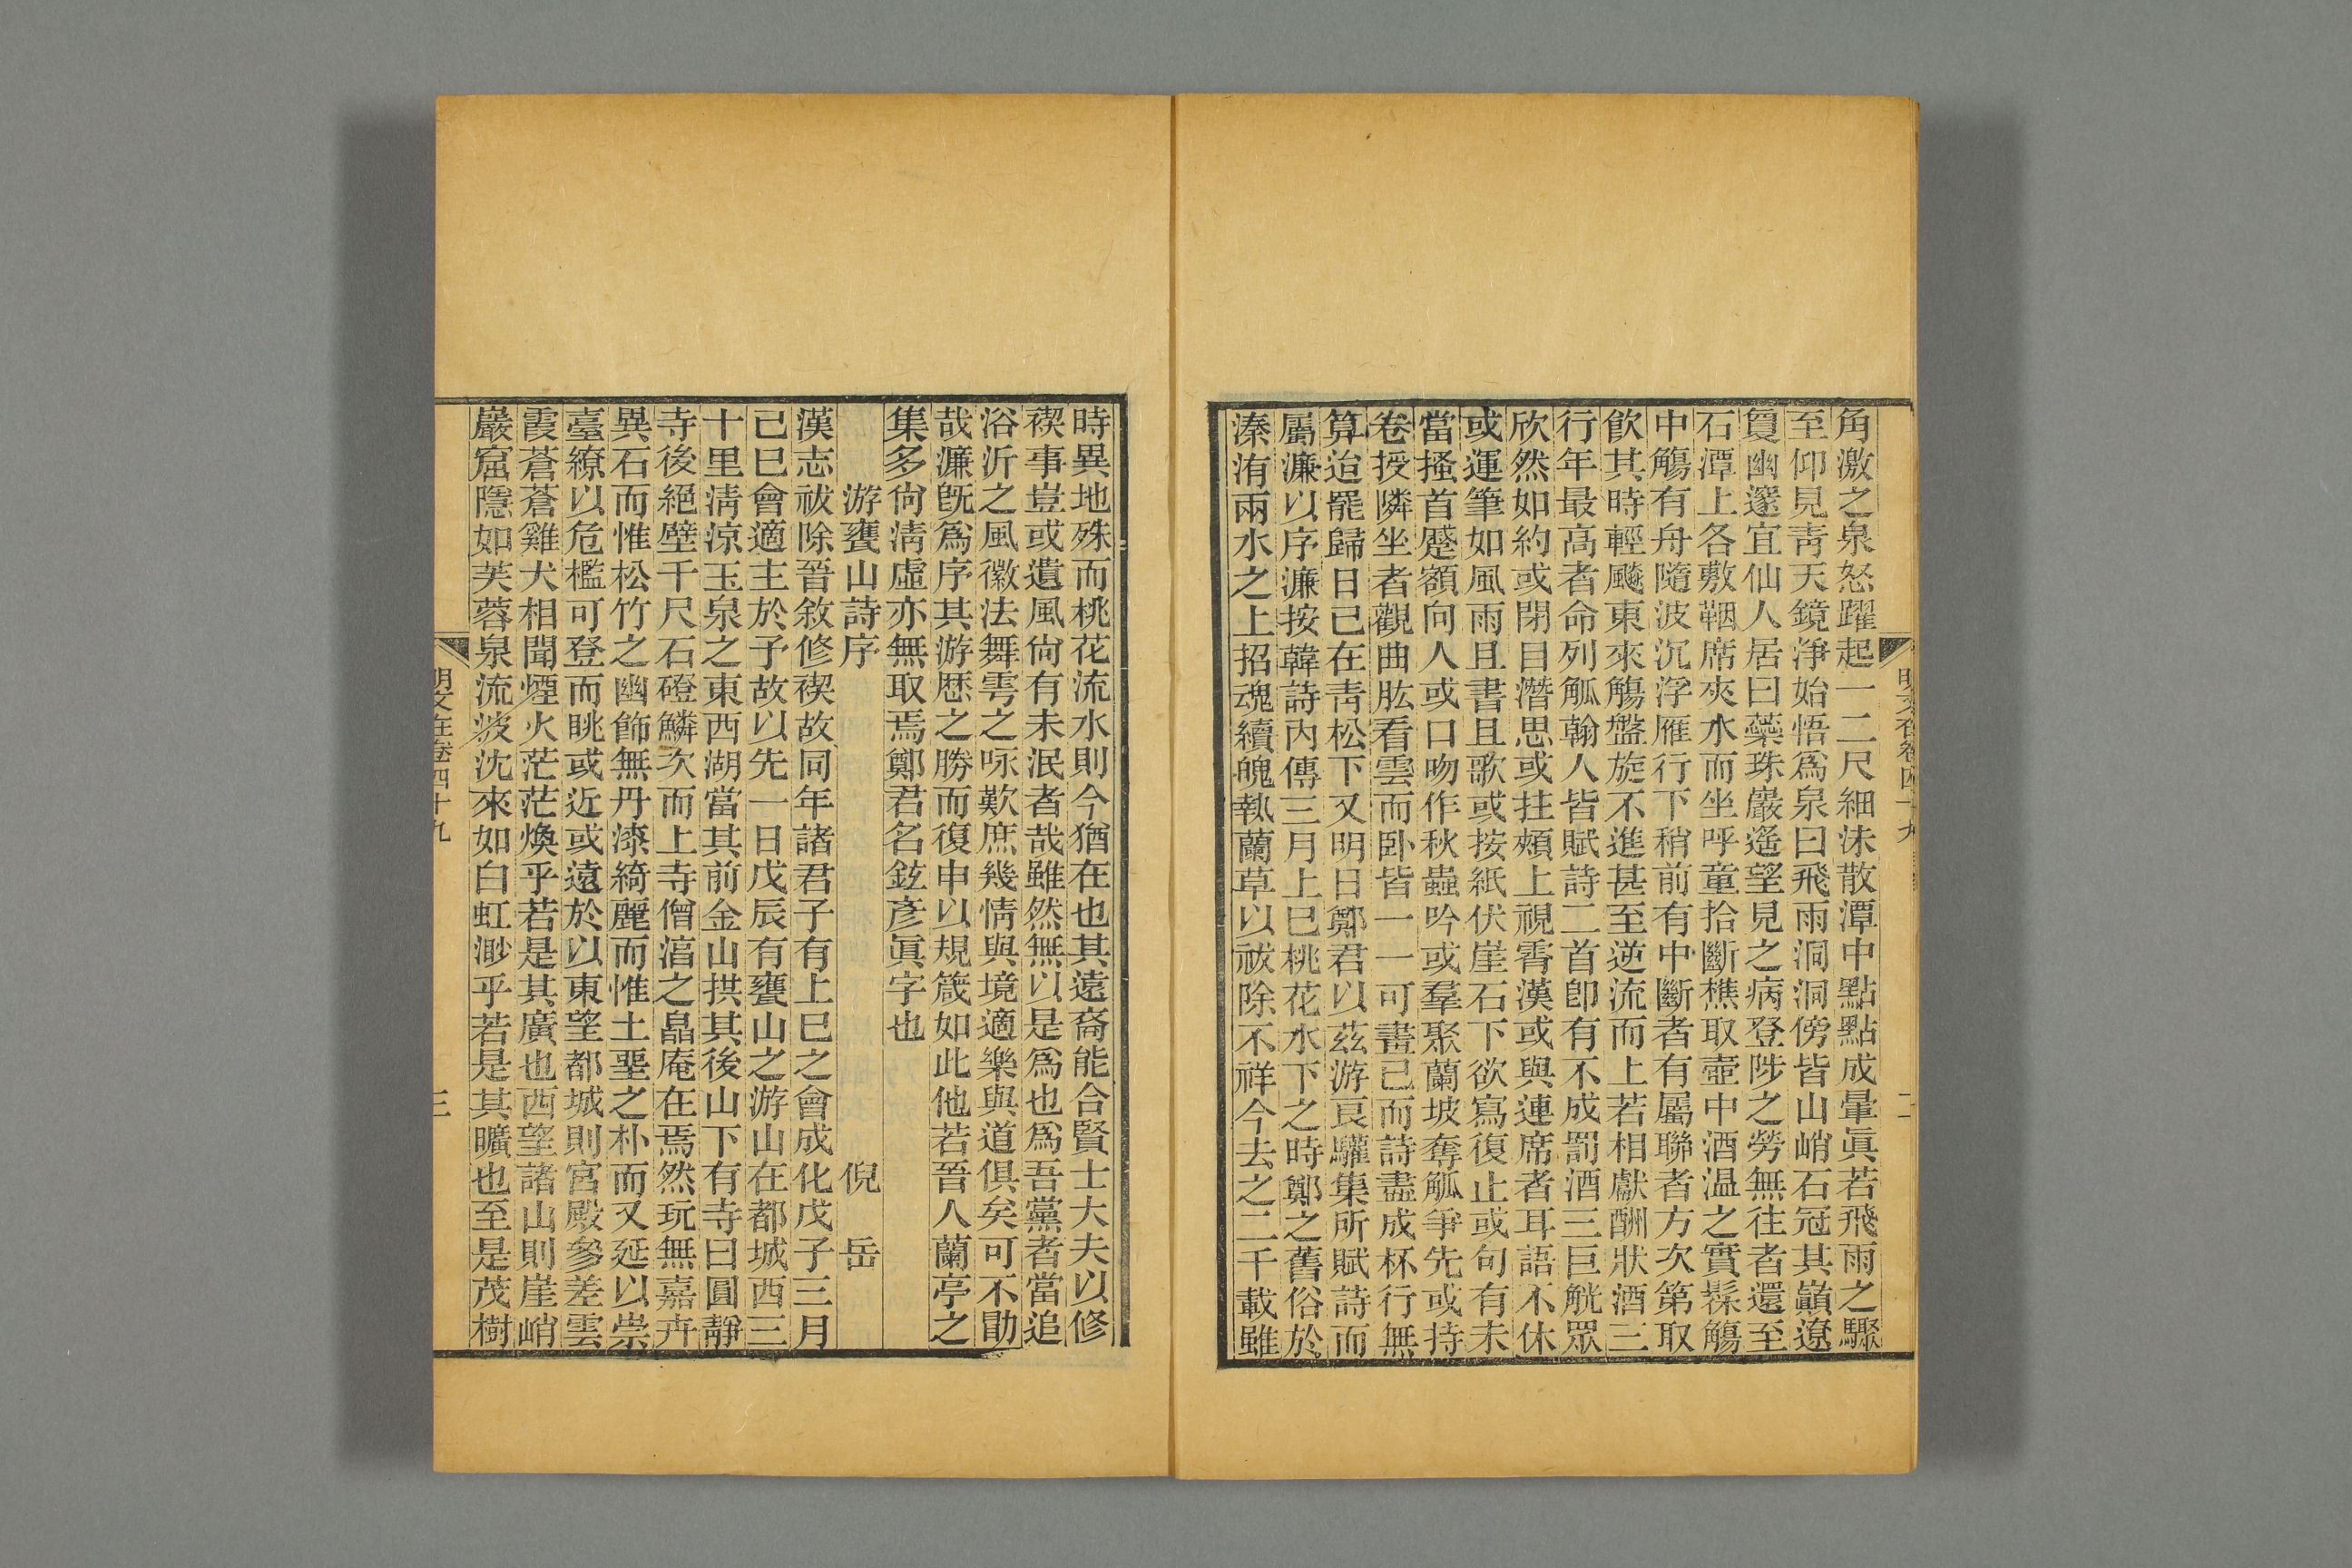 角激之泉怒躍起一二尺細沫散潭中點點成暈眞若飛雨之驟
至仰見靑天鏡淨始悟爲泉曰飛雨洞洞傍皆山峭石冠其巓遼
敻幽邃宜仙人居曰蘂珠巖遙望見之病登陟之勞無往者還至
石潭上各敷鞇席夾水而坐呼童拾斷樵取壺中酒温之實髹觴
中觴有舟隨波沉浮雁行下稍前有中斷者有屬聯者方次第取
飮其時輕飈東來觴盤旋不進甚至逆流而上若相獻酬狀酒三
行年最高者命列觚翰人皆賦詩二首卽有不成罰酒三巨觥眾
欣然如約或閉目潛思或拄頰上視霄漢或與連席者耳語不休
或運筆如風雨且書且歌或按紙伏崖石下欲寫復止或句有未
當搔首蹙額向人或口吻作秋蟲吟或羣聚蘭坡奪觚爭先或持
卷授隣坐者觀曲肱看雲而卧皆一一可畫已而詩盡成杯行無
算迨罷歸日已在靑松下又明日鄭君以茲游良驩集所賦詩而
屬濂以序濂按韓詩內傳三月上巳桃花水下之時鄭之舊俗於
溱洧兩水之上招魂續魄執蘭草以祓除不祥今去之二千載雖
時異地殊而桃花流水則今猶在也其遠裔能合賢士大夫以修
禊事豈或遺風尙有未泯者哉雖然無以是爲也爲吾黨者當追
浴沂之風徽法舞雩之咏歎庶幾情與境適樂與道俱矣可不勖
哉濂旣爲序其游歴之勝而復申以規箴如此他若晉人蘭亭之
集多尙淸虛亦無取焉鄭君名鉉彥眞字也
游甕山詩序 倪岳
漢志祓除晉敘修禊故同年諸君子有上巳之會成化戊子三月
己巳會適主於予故以先一日戊辰有甕山之游山在都城西三
十里淸涼玉泉之東西湖當其前金山拱其後山下有寺曰圓靜
寺後絕壁千尺石磴鱗次而上寺僧湻之晶庵在焉然玩無嘉卉
異石而惟松竹之幽飾無丹漆綺麗而惟土堊之朴而又延以崇
臺繚以危檻可登而眺或近或遠於以東望都城則宮殿參差雲
霞蒼蒼雞犬相聞煙火茫茫煥乎若是其廣也西望諸山則崖峭
巖窟隱如芙蓉泉流波沈來如白虹渺乎若是其曠也至是茂樹
明文在卷四十九
三